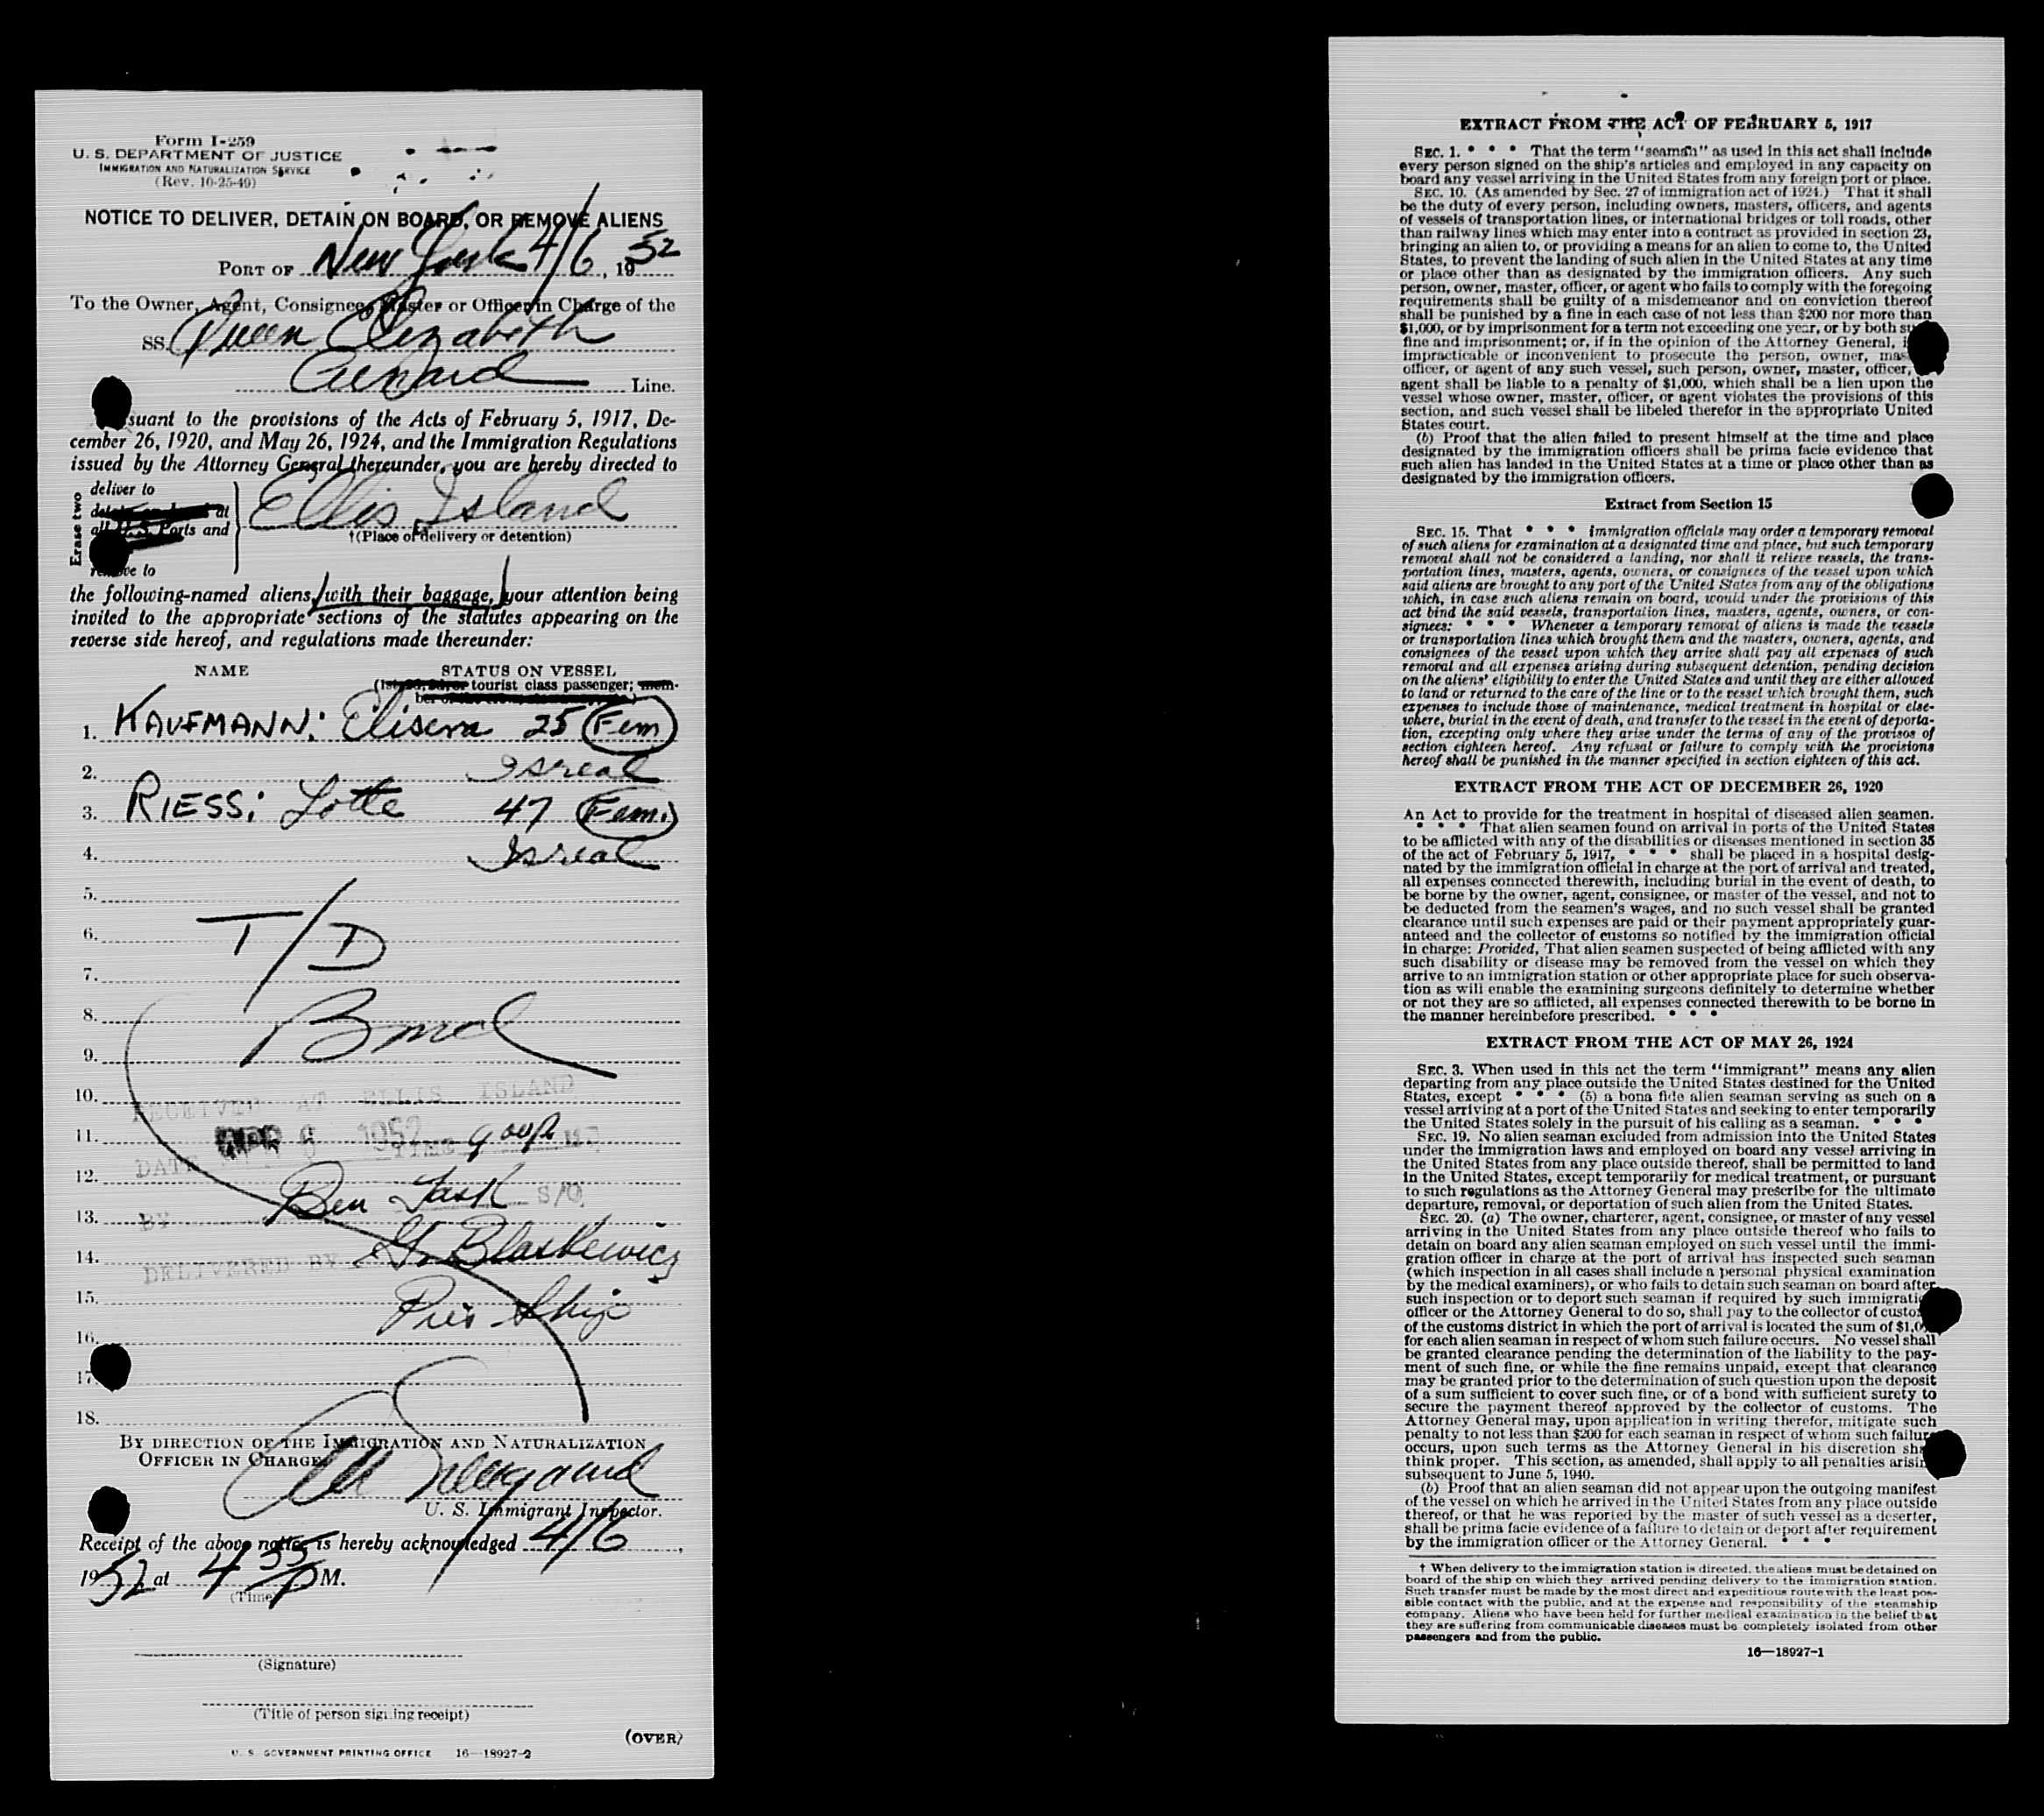 Form I-259
U. S. DEPARTMENT OF JUSTICE
IMMIGRATION AND NATURALIZATION SERVICE
(Rev. 10-25-49)
NOTICE TO DELIVER, DETAIN ON BOARD, OR REMOVE ALIENS
PORT OF New York 4/6, 1952
To the Owner, Agent, Consignee, Master or Officer in Charge of the
SS. Queen Elizabeth
Cunard Line.
suant to the provisions of the Acts of February 5, 1917, De-
cember 26, 1920, and May 26, 1924, and the Immigration Regulations
issued by the Attorney General thereunder, you are hereby directed to
Erase two
deliver to
at
all U. S. Ports and
Ellis Island
†(Place of delivery or detention)
ve to
the following-named aliens, with their baggage, your attention being
invited to the appropriate sections of the statutes appearing on the
reverse side hereof, and regulations made thereunder:
NAME STATUS ON VESSEL
tourist class passenger; mem-
1. KAUFMANN: Elisera 25 (Fem)
2. Isreal
3. RIESS: Lotte 47 (Fem.)
4. Isreal
5.
6. T/D
7.
8.
9.
10. RECEIVED AT ELLIS ISLAND
11. APR 6 1952 9 00 P
DATE TIME
12. Ben S/O
13. BY
14. Blaskewicz
DELIVERED BY
15. Ship
16.
17.
18.
BY DIRECTION OF THE IMMIGRATION AND NATURALIZATION
OFFICER IN CHARGE
U. S. Immigrant Inspector.
Receipt of the above notice is hereby acknowledged 4/6,
1952 at 4 55 P M.
(Time)
(Signature)
(Title of person signing receipt)
(OVER)
U. S. GOVERNMENT PRINTING OFFICE 16—18927-2
EXTRACT FROM THE ACT OF FEBRUARY 5, 1917
SEC. 1. * * * That the term "seaman" as used in this act shall include
every person signed on the ship's articles and employed in any capacity on
board any vessel arriving in the United States from any foreign port or place.
SEC. 10. (As amended by Sec. 27 of immigration act of 1924.) That it shall
be the duty of every person, including owners, masters, officers, and agents
of vessels of transportation lines, or international bridges or toll roads, other
than railway lines which may enter into a contract as provided in section 23,
bringing an alien to, or providing a means for an alien to come to, the United
States, to prevent the landing of such alien in the United States at any time
or place other than as designated by the immigration officers. Any such
person, owner, master, officer, or agent who fails to comply with the foregoing
requirements shall be guilty of a misdemeanor and on conviction thereof
shall be punished by a fine in each case of not less than $200 nor more than
$1,000, or by imprisonment for a term not exceeding one year, or by both su
fine and imprisonment; or, if in the opinion of the Attorney General, i
impracticable or inconvenient to prosecute the person, owner, mas
officer, or agent of any such vessel, such person, owner, master, officer,
agent shall be liable to a penalty of $1,000, which shall be a lien upon the
vessel whose owner, master, officer, or agent violates the provisions of this
section, and such vessel shall be libeled therefor in the appropriate United
States court.
(b) Proof that the alien failed to present himself at the time and place
designated by the immigration officers shall be prima facie evidence that
such alien has landed in the United States at a time or place other than as
designated by the immigration officers.
Extract from Section 15
SEC. 15. That * * * immigration officials may order a temporary removal
of such aliens for examination at a designated time and place, but such temporary
removal shall not be considered a landing, nor shall it relieve vessels, the trans-
portation lines, masters, agents, owners, or consignees of the vessel upon which
said aliens are brought to any port of the United States from any of the obligations
which, in case such aliens remain on board, would under the provisions of this
act bind the said vessels, transportation lines, masters, agents, owners, or con-
signees: * * * Whenever a temporary removal of aliens is made the vessels
or transportation lines which brought them and the masters, owners, agents, and
consignees of the vessel upon which they arrive shall pay all expenses of such
removal and all expenses arising during subsequent detention, pending decision
on the aliens' eligibility to enter the United States and until they are either allowed
to land or returned to the care of the line or to the vessel which brought them, such
expenses to include those of maintenance, medical treatment in hospital or else-
where, burial in the event of death, and transfer to the vessel in the event of deporta-
tion, excepting only where they arise under the terms of any of the provisos of
section eighteen hereof. Any refusal or failure to comply with the provisions
hereof shall be punished in the manner specified in section eighteen of this act.
EXTRACT FROM THE ACT OF DECEMBER 26, 1920
An Act to provide for the treatment in hospital of diseased alien seamen.
* * * That alien seamen found on arrival in ports of the United States
to be afflicted with any of the disabilities or diseases mentioned in section 35
of the act of February 5, 1917, * * * shall be placed in a hospital desig-
nated by the immigration official in charge at the port of arrival and treated,
all expenses connected therewith, including burial in the event of death, to
be borne by the owner, agent, consignee, or master of the vessel, and not to
be deducted from the seamen's wages, and no such vessel shall be granted
clearance until such expenses are paid or their payment appropriately guar-
anteed and the collector of customs so notified by the immigration official
in charge: Provided, That alien seamen suspected of being afflicted with any
such disability or disease may be removed from the vessel on which they
arrive to an immigration station or other appropriate place for such observa-
tion as will enable the examining surgeons definitely to determine whether
or not they are so afflicted, all expenses connected therewith to be borne in
the manner hereinbefore prescribed. * * *
EXTRACT FROM THE ACT OF MAY 26, 1924
SEC. 3. When used in this act the term "immigrant" means any alien
departing from any place outside the United States destined for the United
States, except * * * (5) a bona fide alien seaman serving as such on a
vessel arriving at a port of the United States and seeking to enter temporarily
the United States solely in the pursuit of his calling as a seaman. * * *
SEC. 19. No alien seaman excluded from admission into the United States
under the immigration laws and employed on board any vessel arriving in
the United States from any place outside thereof, shall be permitted to land
in the United States, except temporarily for medical treatment, or pursuant
to such regulations as the Attorney General may prescribe for the ultimate
departure, removal, or deportation of such alien from the United States.
SEC. 20. (a) The owner, charterer, agent, consignee, or master of any vessel
arriving in the United States from any place outside thereof who fails to
detain on board any alien seaman employed on such vessel until the immi-
gration officer in charge at the port of arrival has inspected such seaman
(which inspection in all cases shall include a personal physical examination
by the medical examiners), or who fails to detain such seaman on board after
such inspection or to deport such seaman if required by such immigratio
officer or the Attorney General to do so, shall pay to the collector of custo
of the customs district in which the port of arrival is located the sum of $1,0
for each alien seaman in respect of whom such failure occurs. No vessel shall
be granted clearance pending the determination of the liability to the pay-
ment of such fine, or while the fine remains unpaid, except that clearance
may be granted prior to the determination of such question upon the deposit
of a sum sufficient to cover such fine, or of a bond with sufficient surety to
secure the payment thereof approved by the collector of customs. The
Attorney General may, upon application in writing therefor, mitigate such
penalty to not less than $200 for each seaman in respect of whom such failure
occurs, upon such terms as the Attorney General in his discretion sha
think proper. This section, as amended, shall apply to all penalties arisin
subsequent to June 5, 1940.
(b) Proof that an alien seaman did not appear upon the outgoing manifest
of the vessel on which he arrived in the United States from any place outside
thereof, or that he was reported by the master of such vessel as a deserter,
shall be prima facie evidence of a failure to detain or deport after requirement
by the immigration officer or the Attorney General. * * *
† When delivery to the immigration station is directed, the aliens must be detained on
board of the ship on which they arrived pending delivery to the immigration station.
Such transfer must be made by the most direct and expeditious route with the least pos-
sible contact with the public, and at the expense and responsibility of the steamship
company. Aliens who have been held for further medical examination in the belief that
they are suffering from communicable diseases must be completely isolated from other
passengers and from the public.
16—18927-1